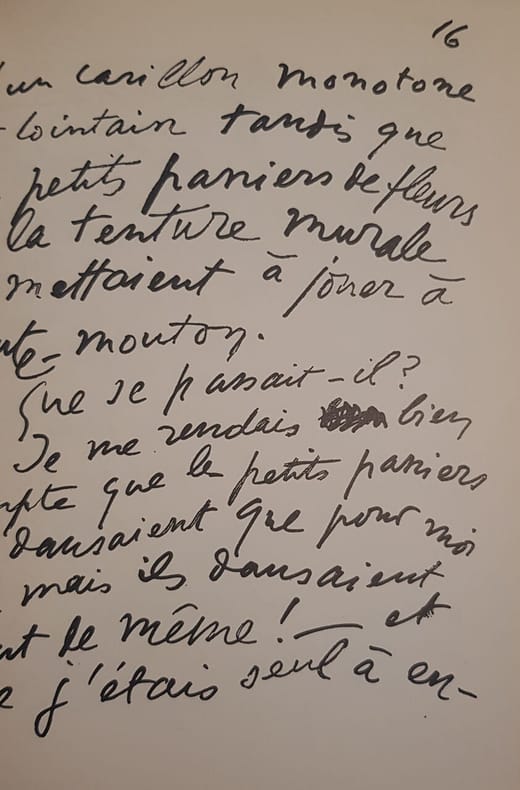 16
un carillon monotone
lointain tandis que
petits paniers de fleurs
la tenture murale
mettaient à jouer à
mouton.
Que se passait-il?
Je me rendais bien
que les petits paniers
dansaient que pour moi
mais ils dansaient
de même! — et
j'étais seul à en-